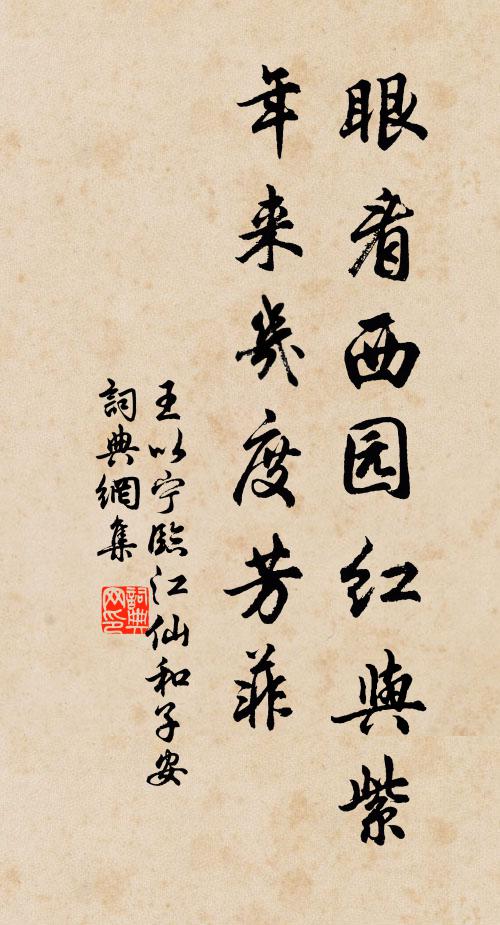 眼看西园红與紫
年来幾度芳菲
王以宁臨江仙和子安
詞典網集
詞典
网印